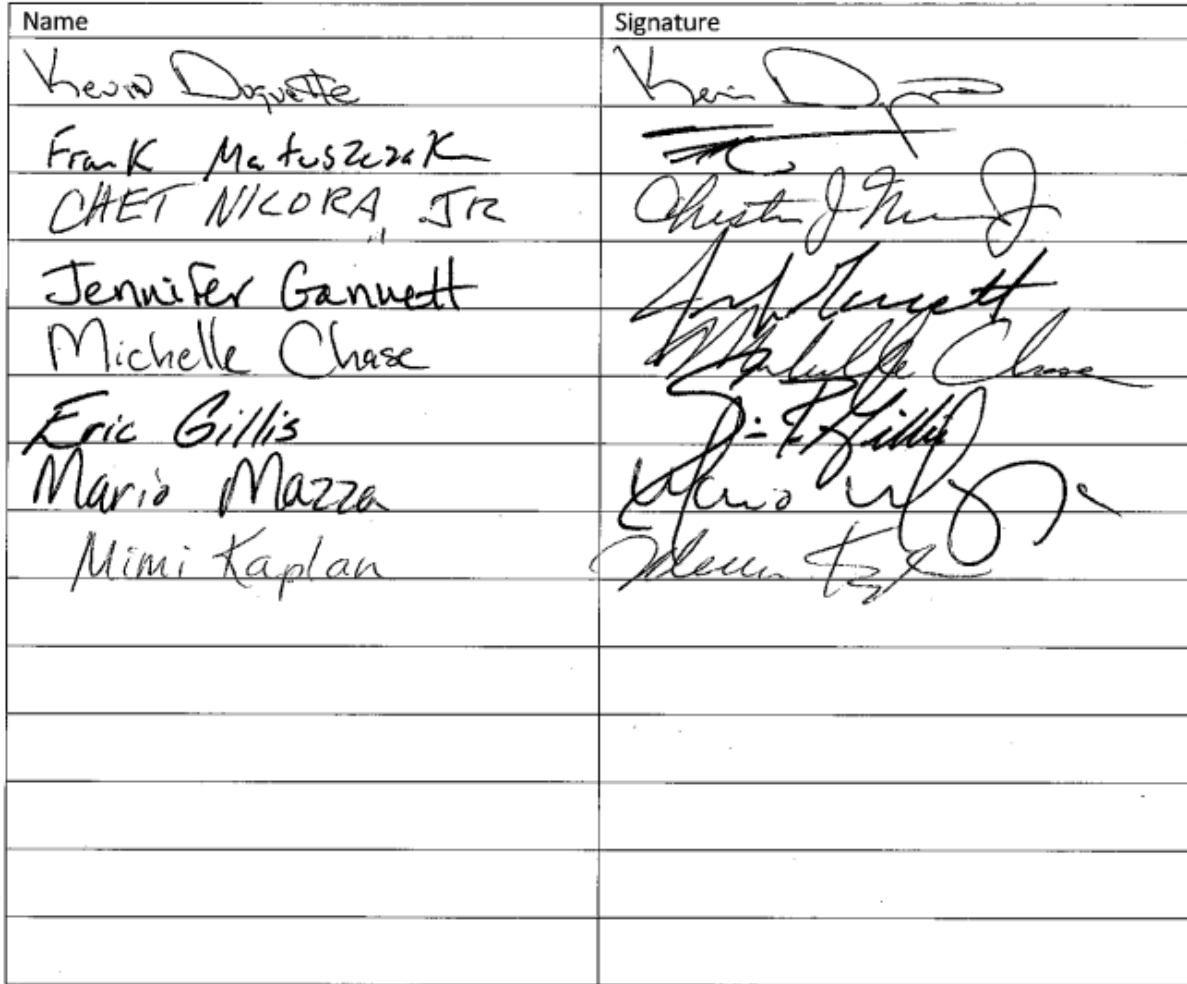 Name Signature
Kevin Doquette Kevin
Frank Matuszczak
CHET NICORA, JR Chester J
Jennifer Gannett
Michelle Chase Michelle Chase
Eric Gillis Gillis
Mario Mazza Mario
Mimi Kaplan